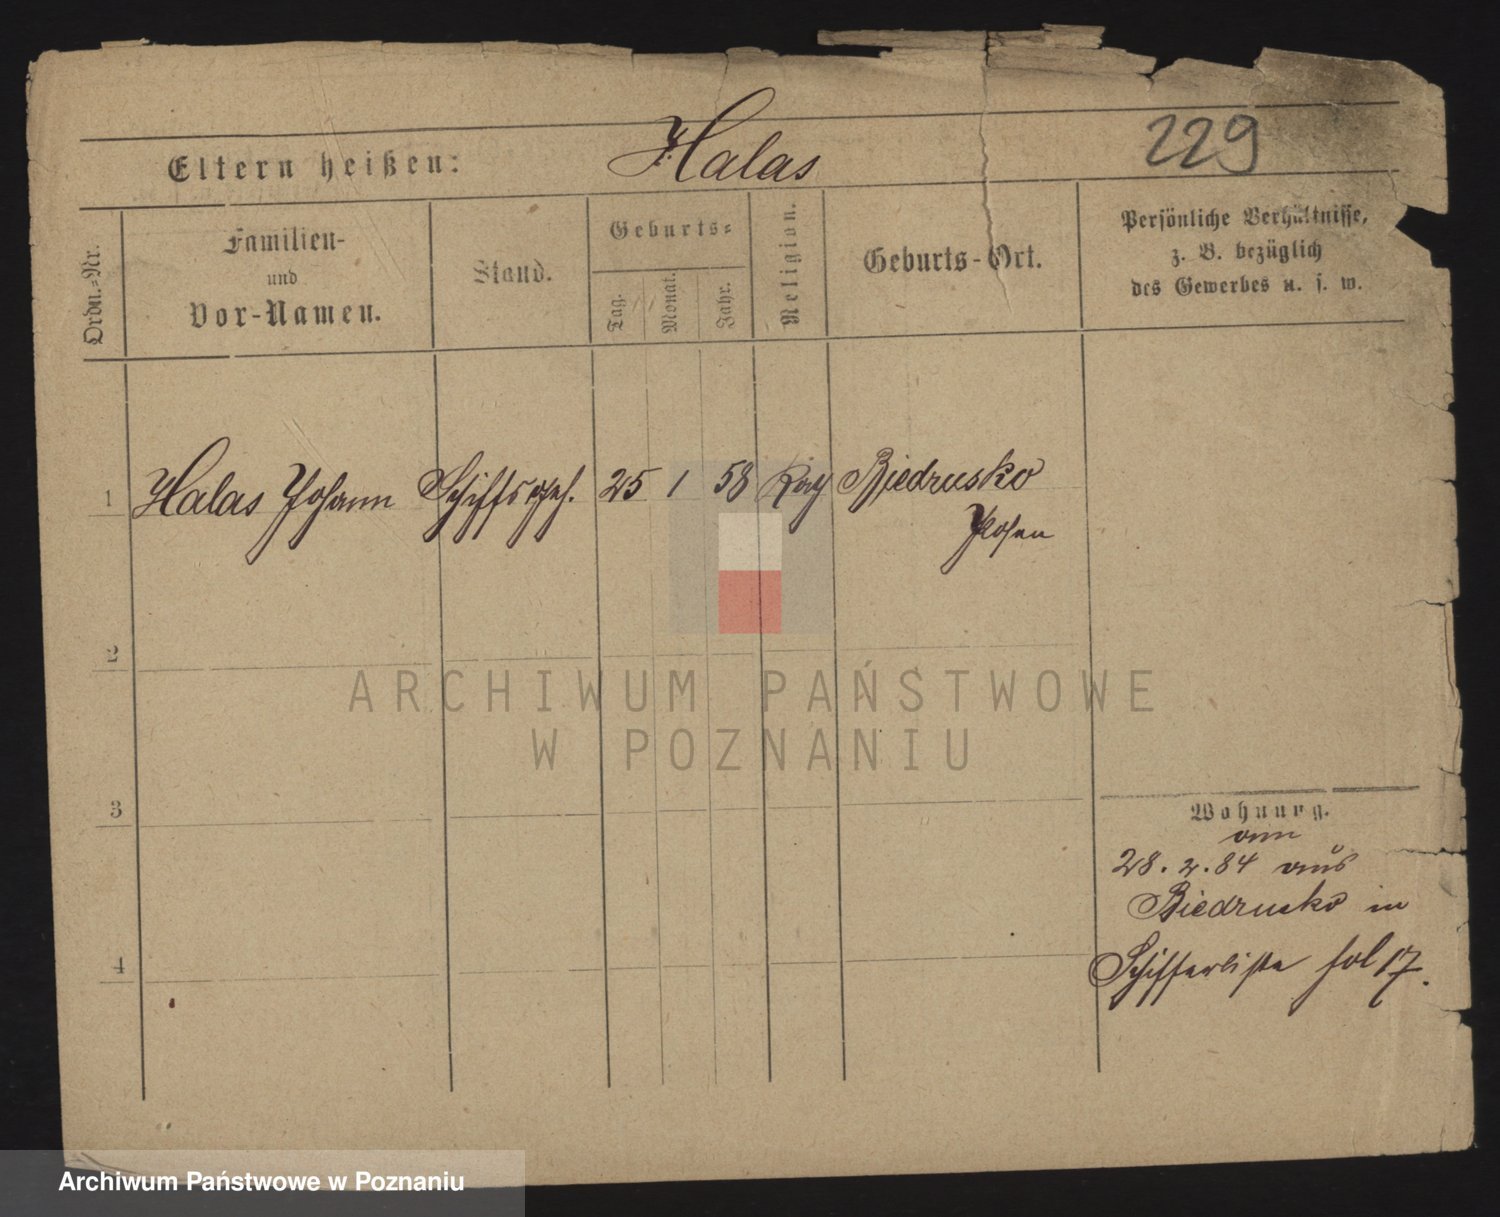 Halas
229
Eltern heißen:
Ordn.-Nr.
Familien-
und
Vor-Namen.
Stand.
Geburts-
Tag.
Monat.
Jahr.
Religion.
Geburts-Ort.
Persönliche Verhältnisse,
z. B. bezüglich
des Gewerbes u. s. w.
1 Halas Johann Schiffsgeh. 25 1 58 Biedrusko
Posen
2
3
4
Wohnung.
28. 2. 84 aus
Biedrusko in
Schifferliste fol 17.
ARCHIWUM PAŃSTWOWE
W POZNANIU
Archiwum Państwowe w Poznaniu